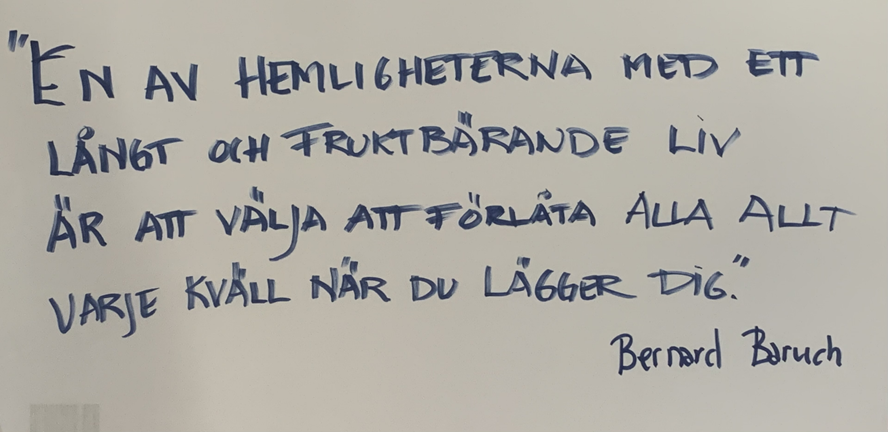 "EN AV HEMLIGHETERNA MED ETT
LÅNGT OCH FRUKTBÄRANDE LIV
ÄR ATT VÄLJA ATT FÖRLÅTA ALLA ALLT
VARJE KVÄLL NÄR DU LÄGGER DIG."
Bernard Baruch